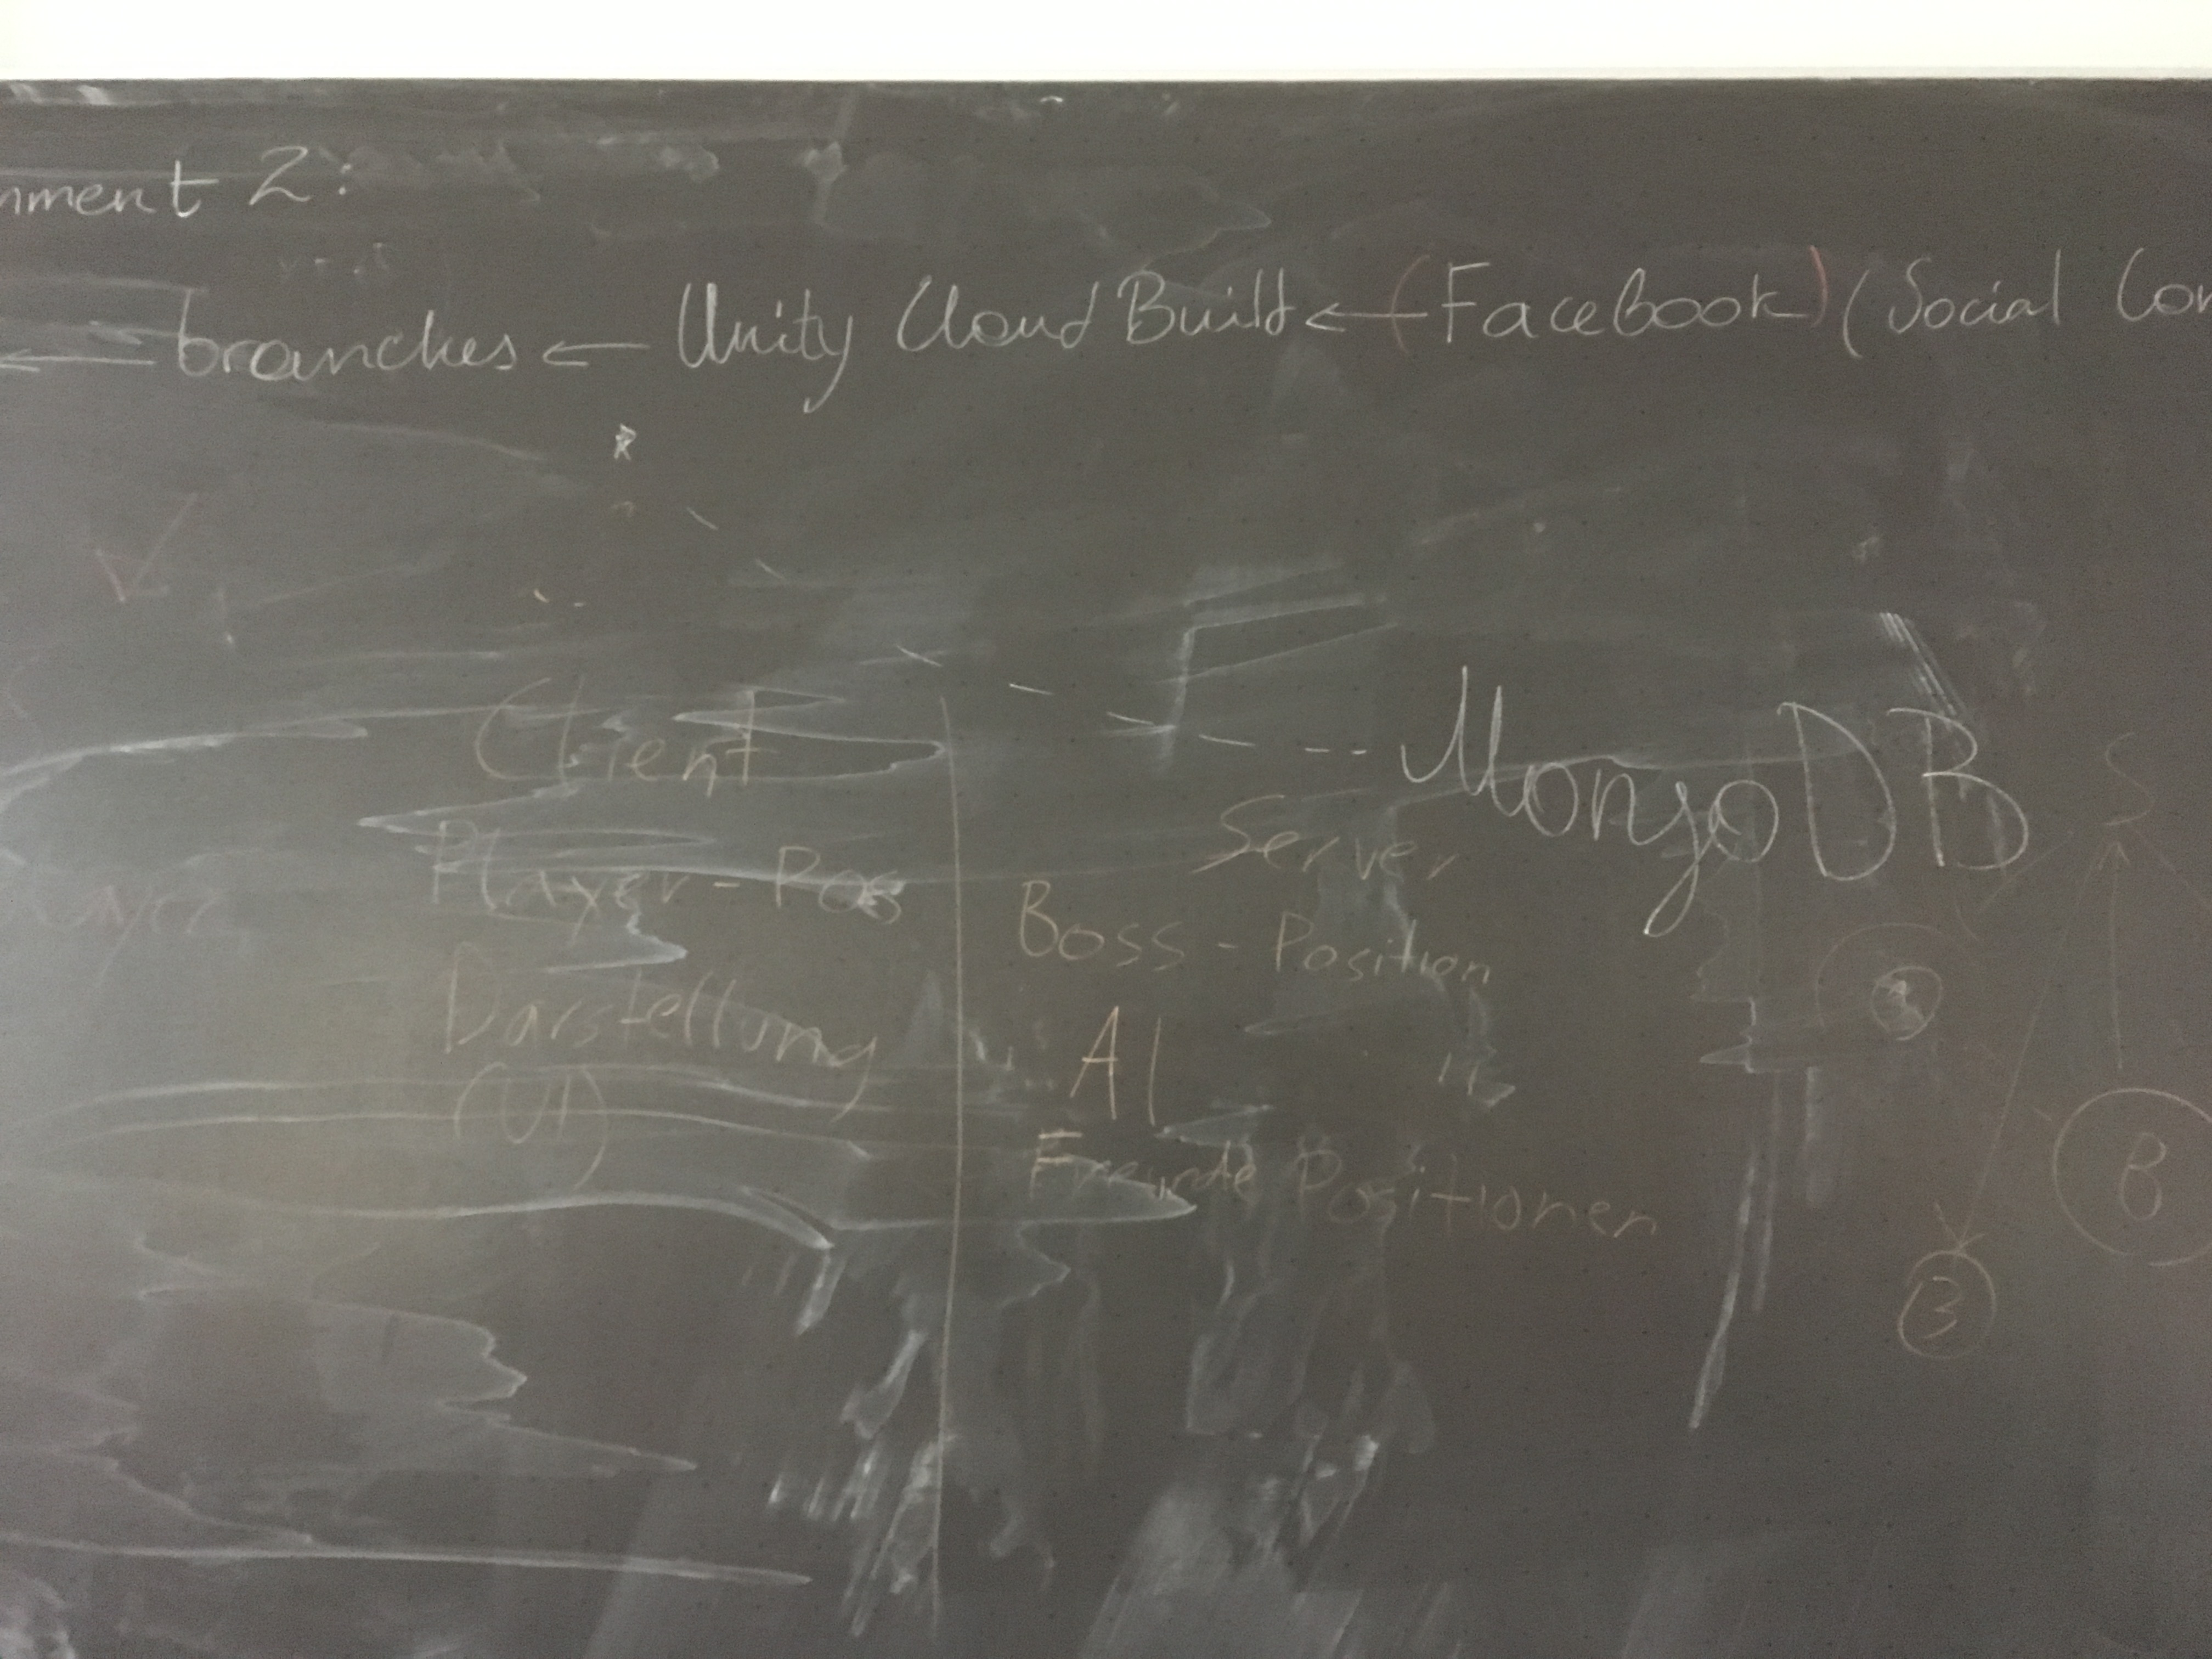 nment 2:
← branches ← Unity Cloud Build ← (Facebook) (Social Con
Client
Player-Pos
Darstellung
(UI)
MongoDB
Server
Boss-Position
AI
Freunde Positionen
S
B
B